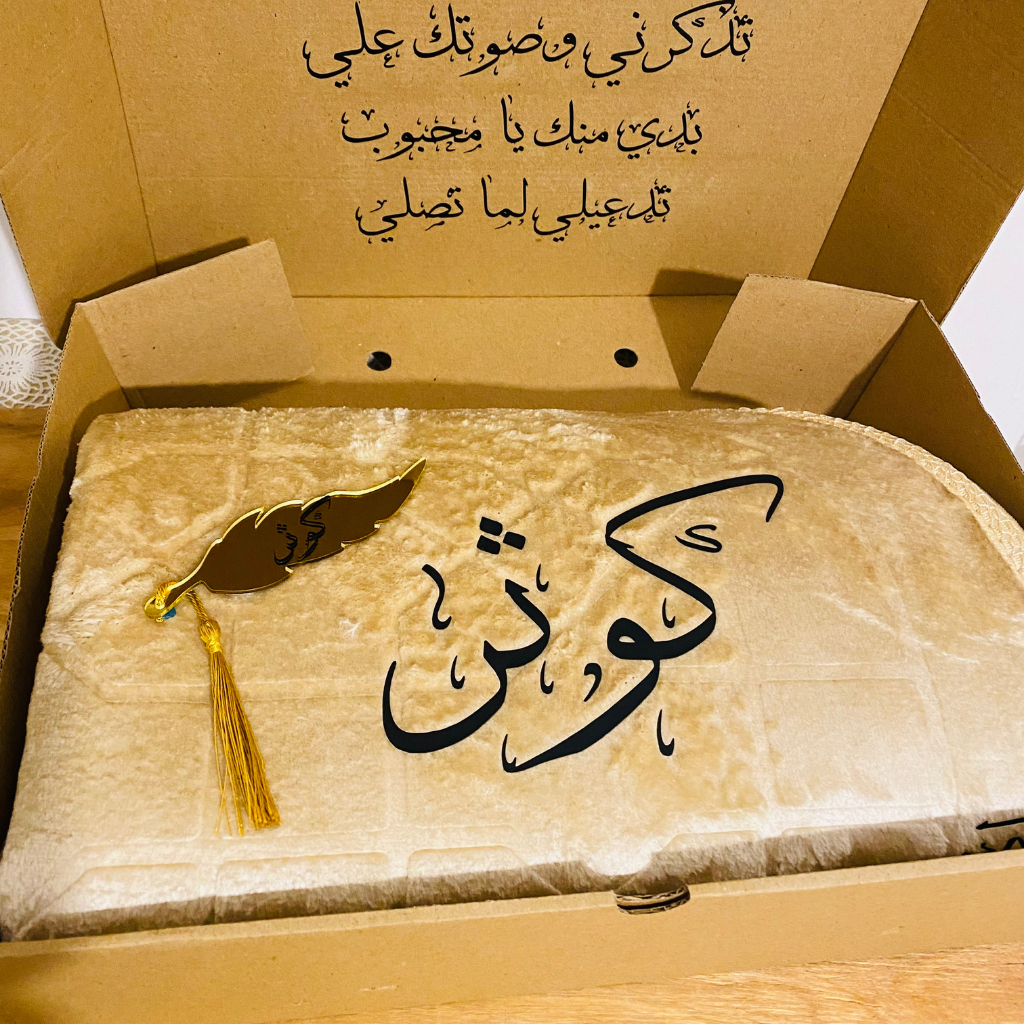 تذكرني وصوتك علي
بدي منك يا محبوب
تدعيلي لما تصلي
كوثر
كوثر